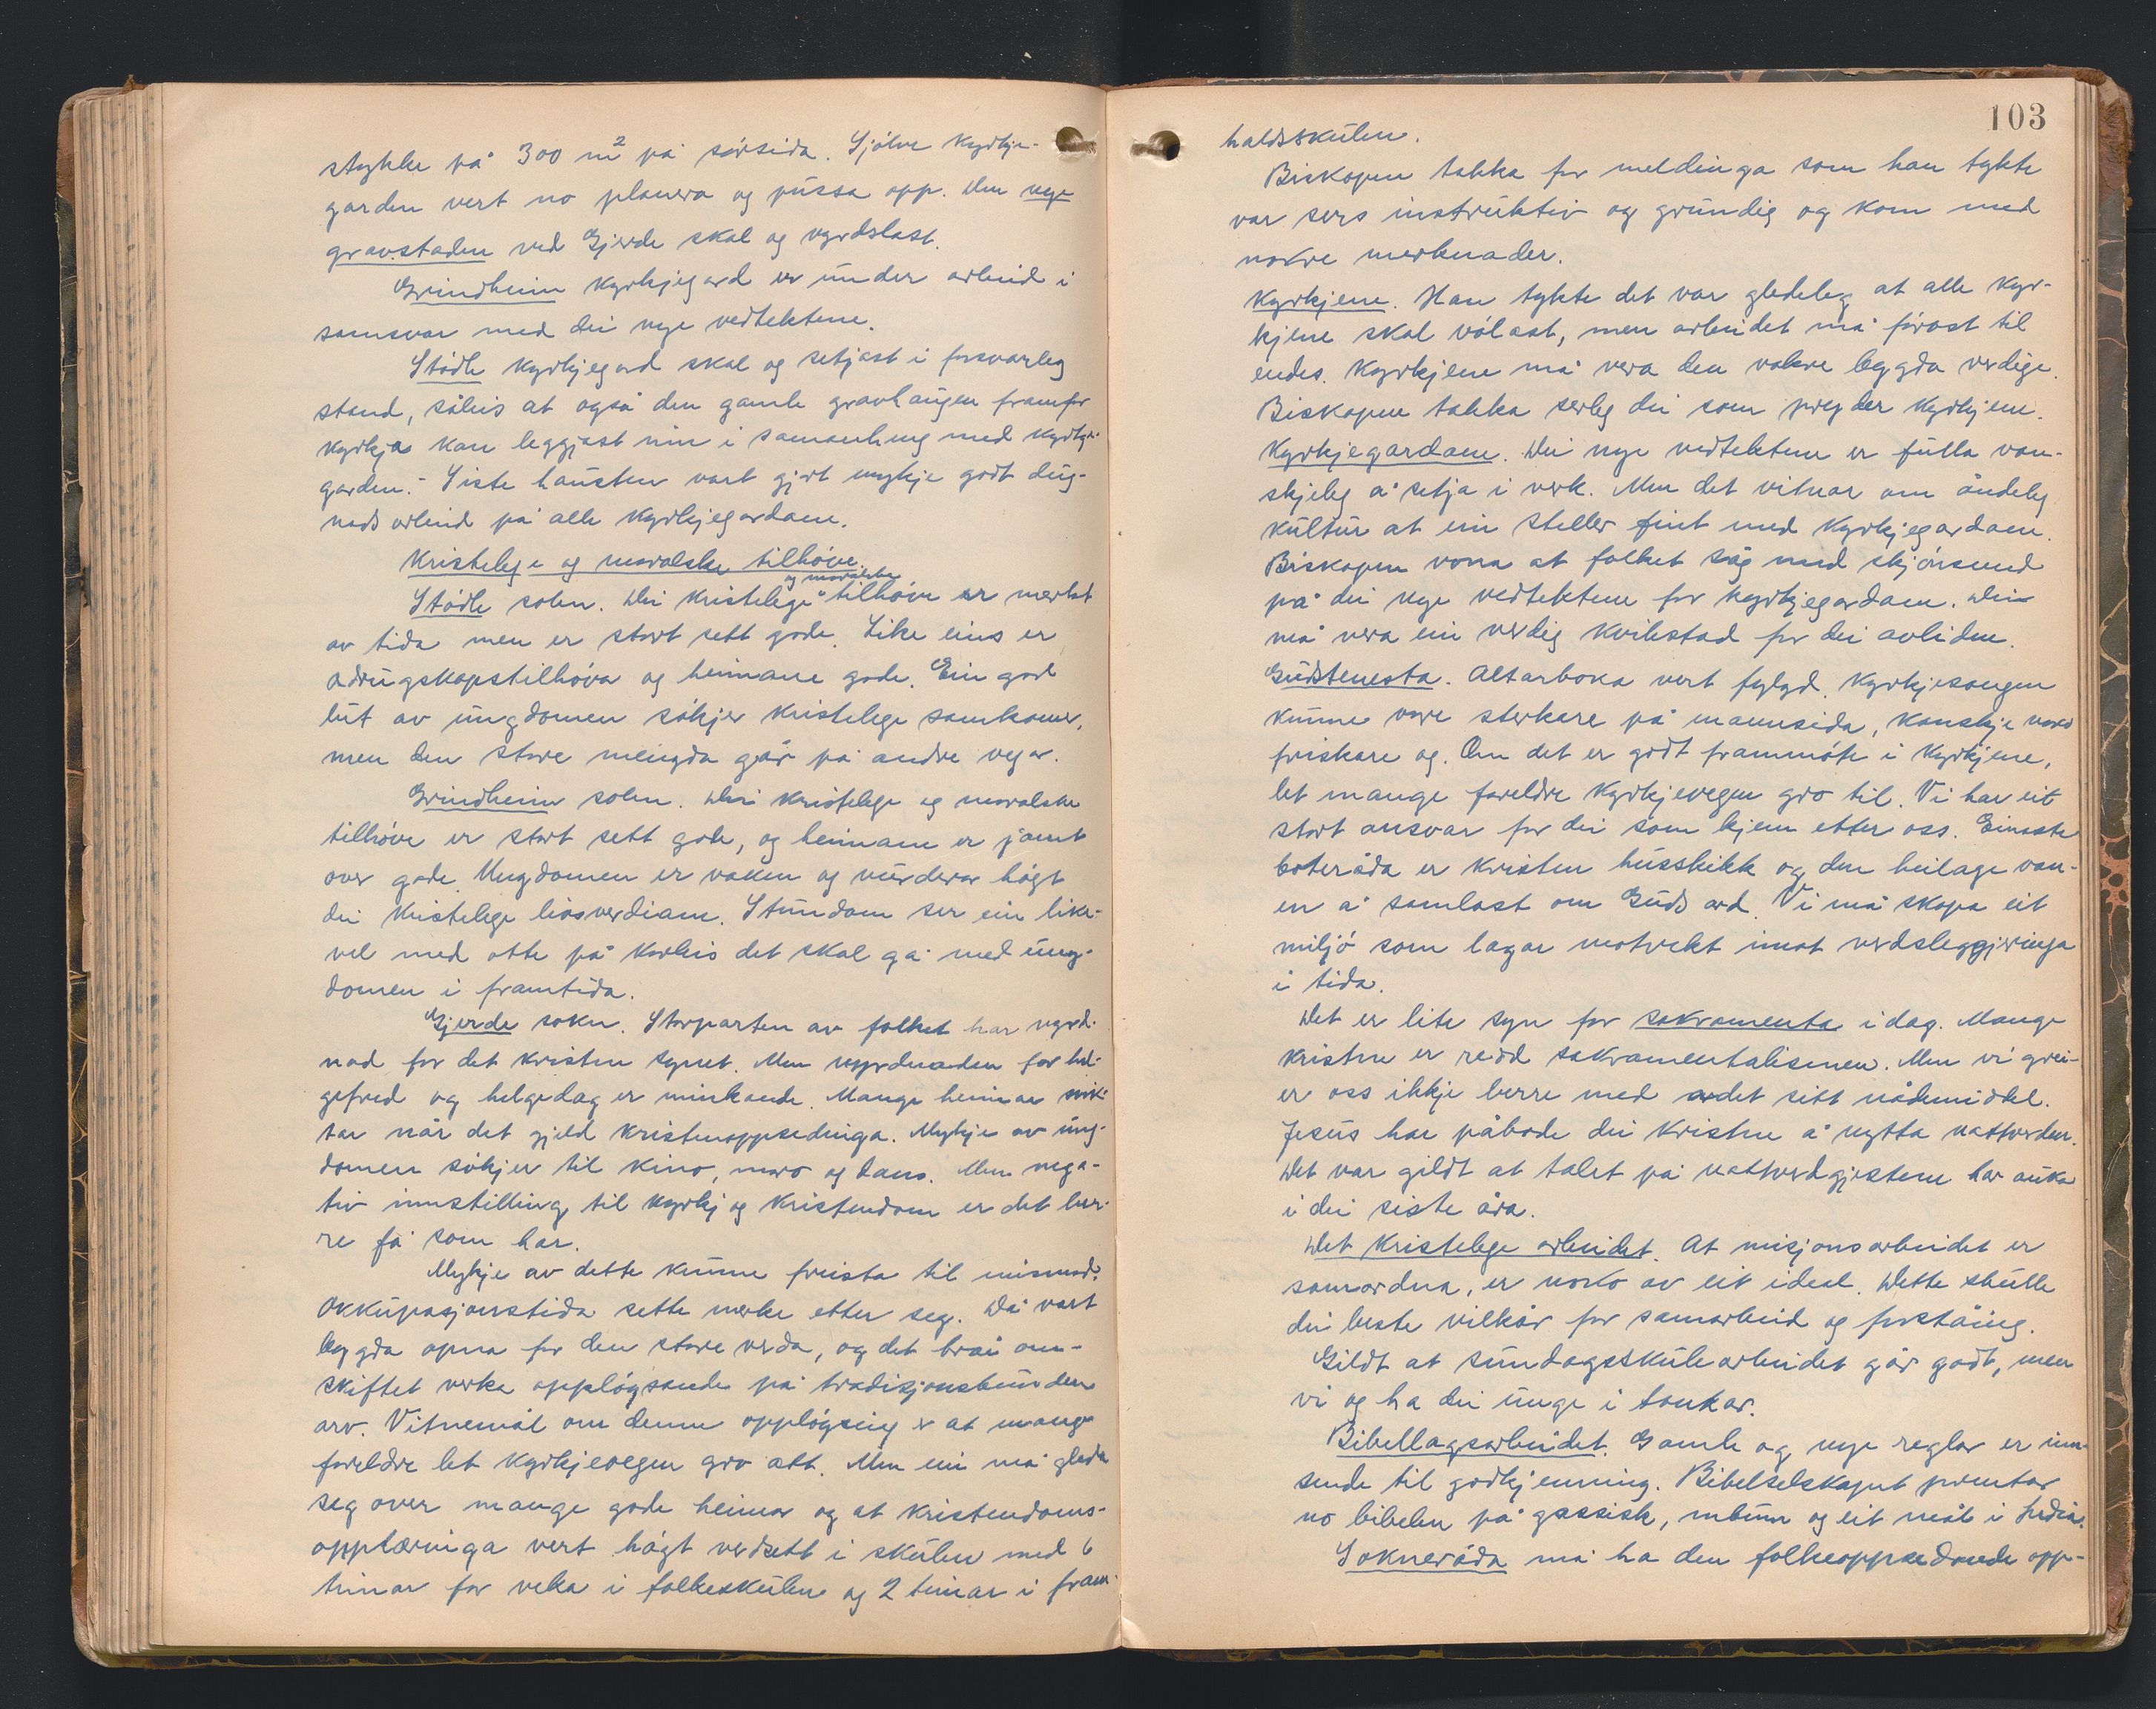 stykke på 300 m² på sørsida. Sjølve kyrkje-
garden vert no planera og pussa opp. Den nye
gravstaden ved Gjerde skal og vyrdslast.
Grindheim kyrkjegard er under arbeid i
samsvar med dei nye vedtektene.
Stødle kyrkjegard skal og setjast i forsvarleg
stand, såleis at også den gamle gravhaugen framfor
kyrkja kan leggjast inn i samanheng med kyrkje-
garden. - Siste hausten vart gjort mykje godt dug-
nadsarbeid på alle kyrkjegardane.
Kristelege og moralske tilhøve.
og moralske
Stødle sokn. Dei kristelege tilhøve er merkt
av tida men er stort sett gode. Like eins er
adrugskapstilhøva og heimane gode. Ein god
lut av ungdomen søkjer kristelege samkomer,
men den store mengda går på andre vegar.
Grindheim sokn. Dei kristelege og moralske
tilhøve er stort sett gode, og heimane er jamt
over gode. Ungdomen er vaken og vurderar høgt
dei kristelege livsverdiane. Stundom ser ein like-
vel med otte på korleis det skal gå med ung-
domen i framtida.
Gjerde sokn. Storparten av folket har vyrd-
nad for det kristne synet. Men vyrdnaden for hel-
gefred og helgedag er minkande. Mange heimar svik-
tar når det gjeld kristenoppsedinga. Mykje av ung-
domen søkjer til kino, moro og dans. Men nega-
tiv innstilling til kyrkj og kristendom er det ber-
re få som har.
Mykje av dette kunne freista til mismod.
Okkupasjonstida sette merke etter seg. Då vart
bygda opna for den store verda, og det brå om-
skiftet verka oppløysande på tradisjonsbunden
arv. Vitnemål om denne oppløysing er at mange
foreldre let kyrkjevegen gro att. Men ein må gleda
seg over mange gode heimar og at kristendoms-
opplæringa vert høgt verdsett i skulen med 6
timar for veka i folkeskulen og 2 timar i fram-
103
haldsskulen.
Biskopen takka for meldinga som han tykte
var sers instruktiv og grundig og kom med
nokre merknader.
Kyrkjene. Han tykte det var gledeleg at alle kyr-
kjene skal vølast, men arbeidet må førast til
endes. Kyrkjene må vera den vakre bygda verdige.
Biskopen takka serleg dei som pryder kyrkjene.
Kyrkjegardane. Dei nye vedtektene er fulla van-
skjeleg å setja i verk. Men det vitnar om åndeleg
kultur at ein steller fint med kyrkjegardane.
Biskopen vona at folket såg med skjønsemd
på dei nye vedtektene for kyrkjegardane. Dei
må vera ein verdig kvilestad for dei avlidne.
Gudstenesta. Altarboka vert fylgd. Kyrkjesongen
kunne vore sterkare på mannsida, kanskje vore
friskare og. Om det er godt frammøte i kyrkjene,
let mange foreldre kyrkjevegen gro til. Vi har eit
stort ansvar for dei som kjem etter oss. Einaste
boteråda er kristen husskikk og den heilage van-
en å samlast om Guds ord. Vi må skapa eit
miljø som lagar motvekt imot verdsleggjeringa
i tida.
Det er lite syn for sakramenta idag. Mange
kristne er redd sakramentalismen. Men vi grei-
er oss ikkje berre med ordet sitt nådemiddel.
Jesus har påbode dei kristne å nytta nattverden.
Det var gildt at talet på nattverdgjestene har auka
i dei siste åra.
Det kristelege arbeidet. At misjonsarbeidet er
samordna, er noko av eit ideal. Dette skulle
dei beste vilkår for samarbeid og forståing.
Gildt at sundagsskulearbeidet går godt, men
vi og ha dei unge i tankar.
Bibellagsarbeidet. Gamle og nye reglar er inn-
sende til godkjenning. Bibelselskapet prentar
no bibelen på gassisk, mbum og eit mål i India.
Sokneråda må ha den folkeoppsedande opp-